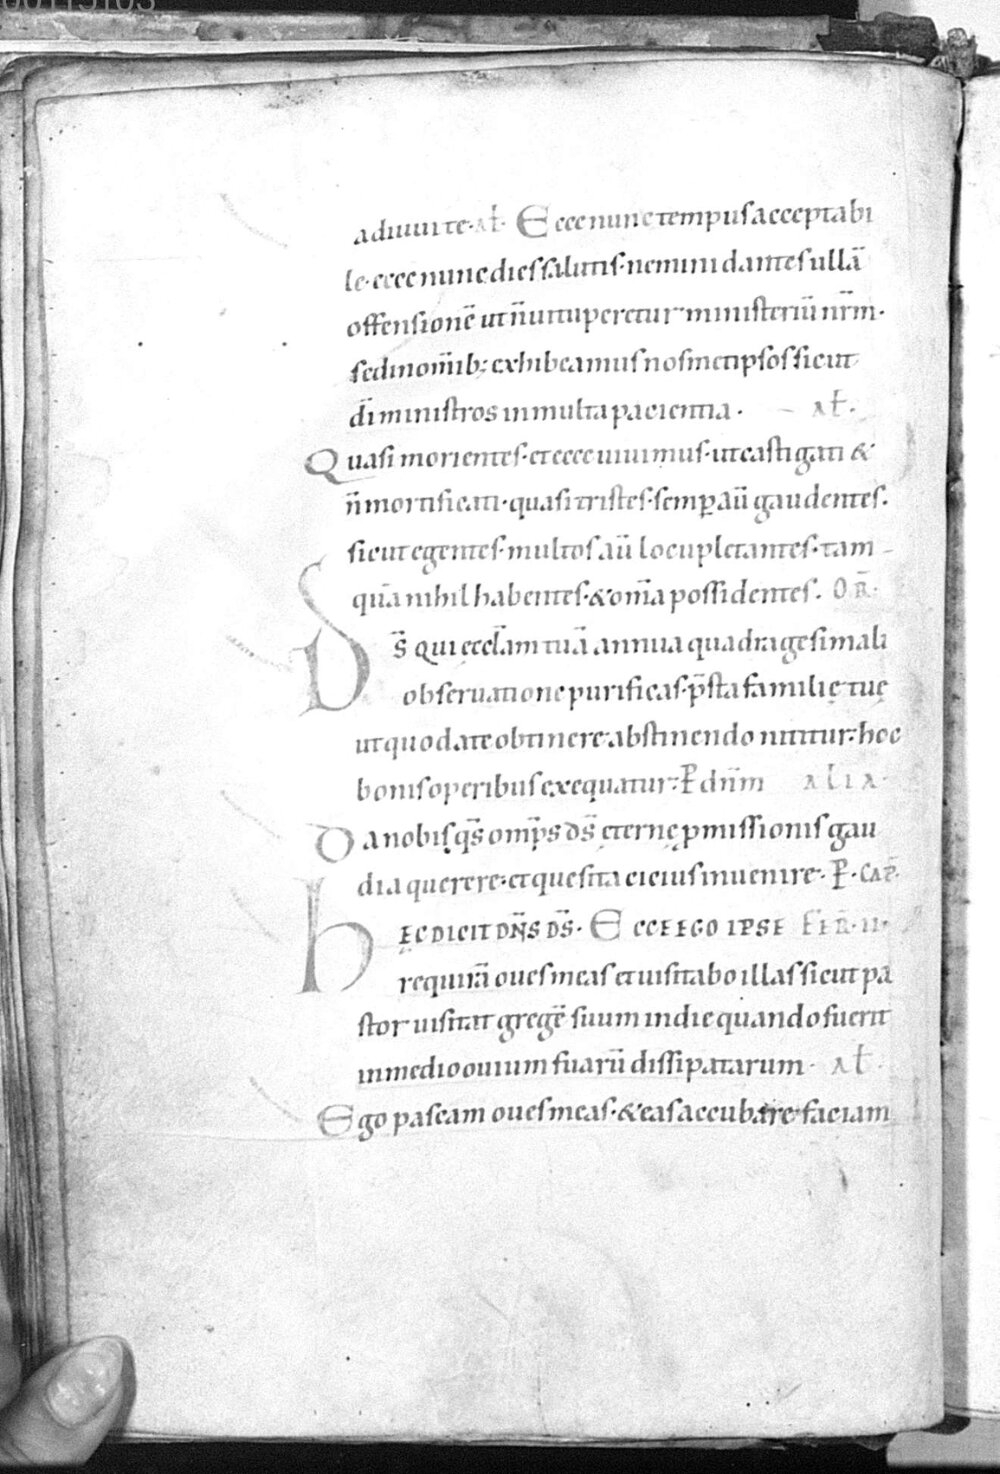 adiuui te. al. Ecce nunc tempus acceptabi
le. ecce nunc dies salutis. nemini dantes ullā
offensionē ut n̄ uituperetur ministeriū nr̄m.
sed in om̄ib; exhibeamus nosmetipsos sicut
dī ministros in multa pacientia. al.
Quasi morientes. et ecce uiuimus. ut castigati &
n̄ mortificati. quasi tristes. semp aū gaudentes.
sicut egentes. multos aū locupletantes. tam
quā nihil habentes. & om̄a possidentes. OR̄.
D̄s qui eccl̄am tuā annua quadragesimali
obseruatione purificas. p̄sta familię tuę
ut quod a te obtinere abstinendo nititur. hoc
bonis operibus exequatur. P dn̄m ALIA.
Da nobis qs̄ omp̄s ds̄ ęternę pmissionis gau
dia querere. et quesita cicius inuenire. P. CAP̄.
hĘC DICIT DN̄S DS̄. ECCE EGO IPSE FER̄. II.
requirā oues meas et uisitabo illas sicut pa
stor uisitat gregē suum in die quando fuerit
in medio ouium suarū dissipatarum. al.
Ego pascam oues meas. & eas accubare faciam